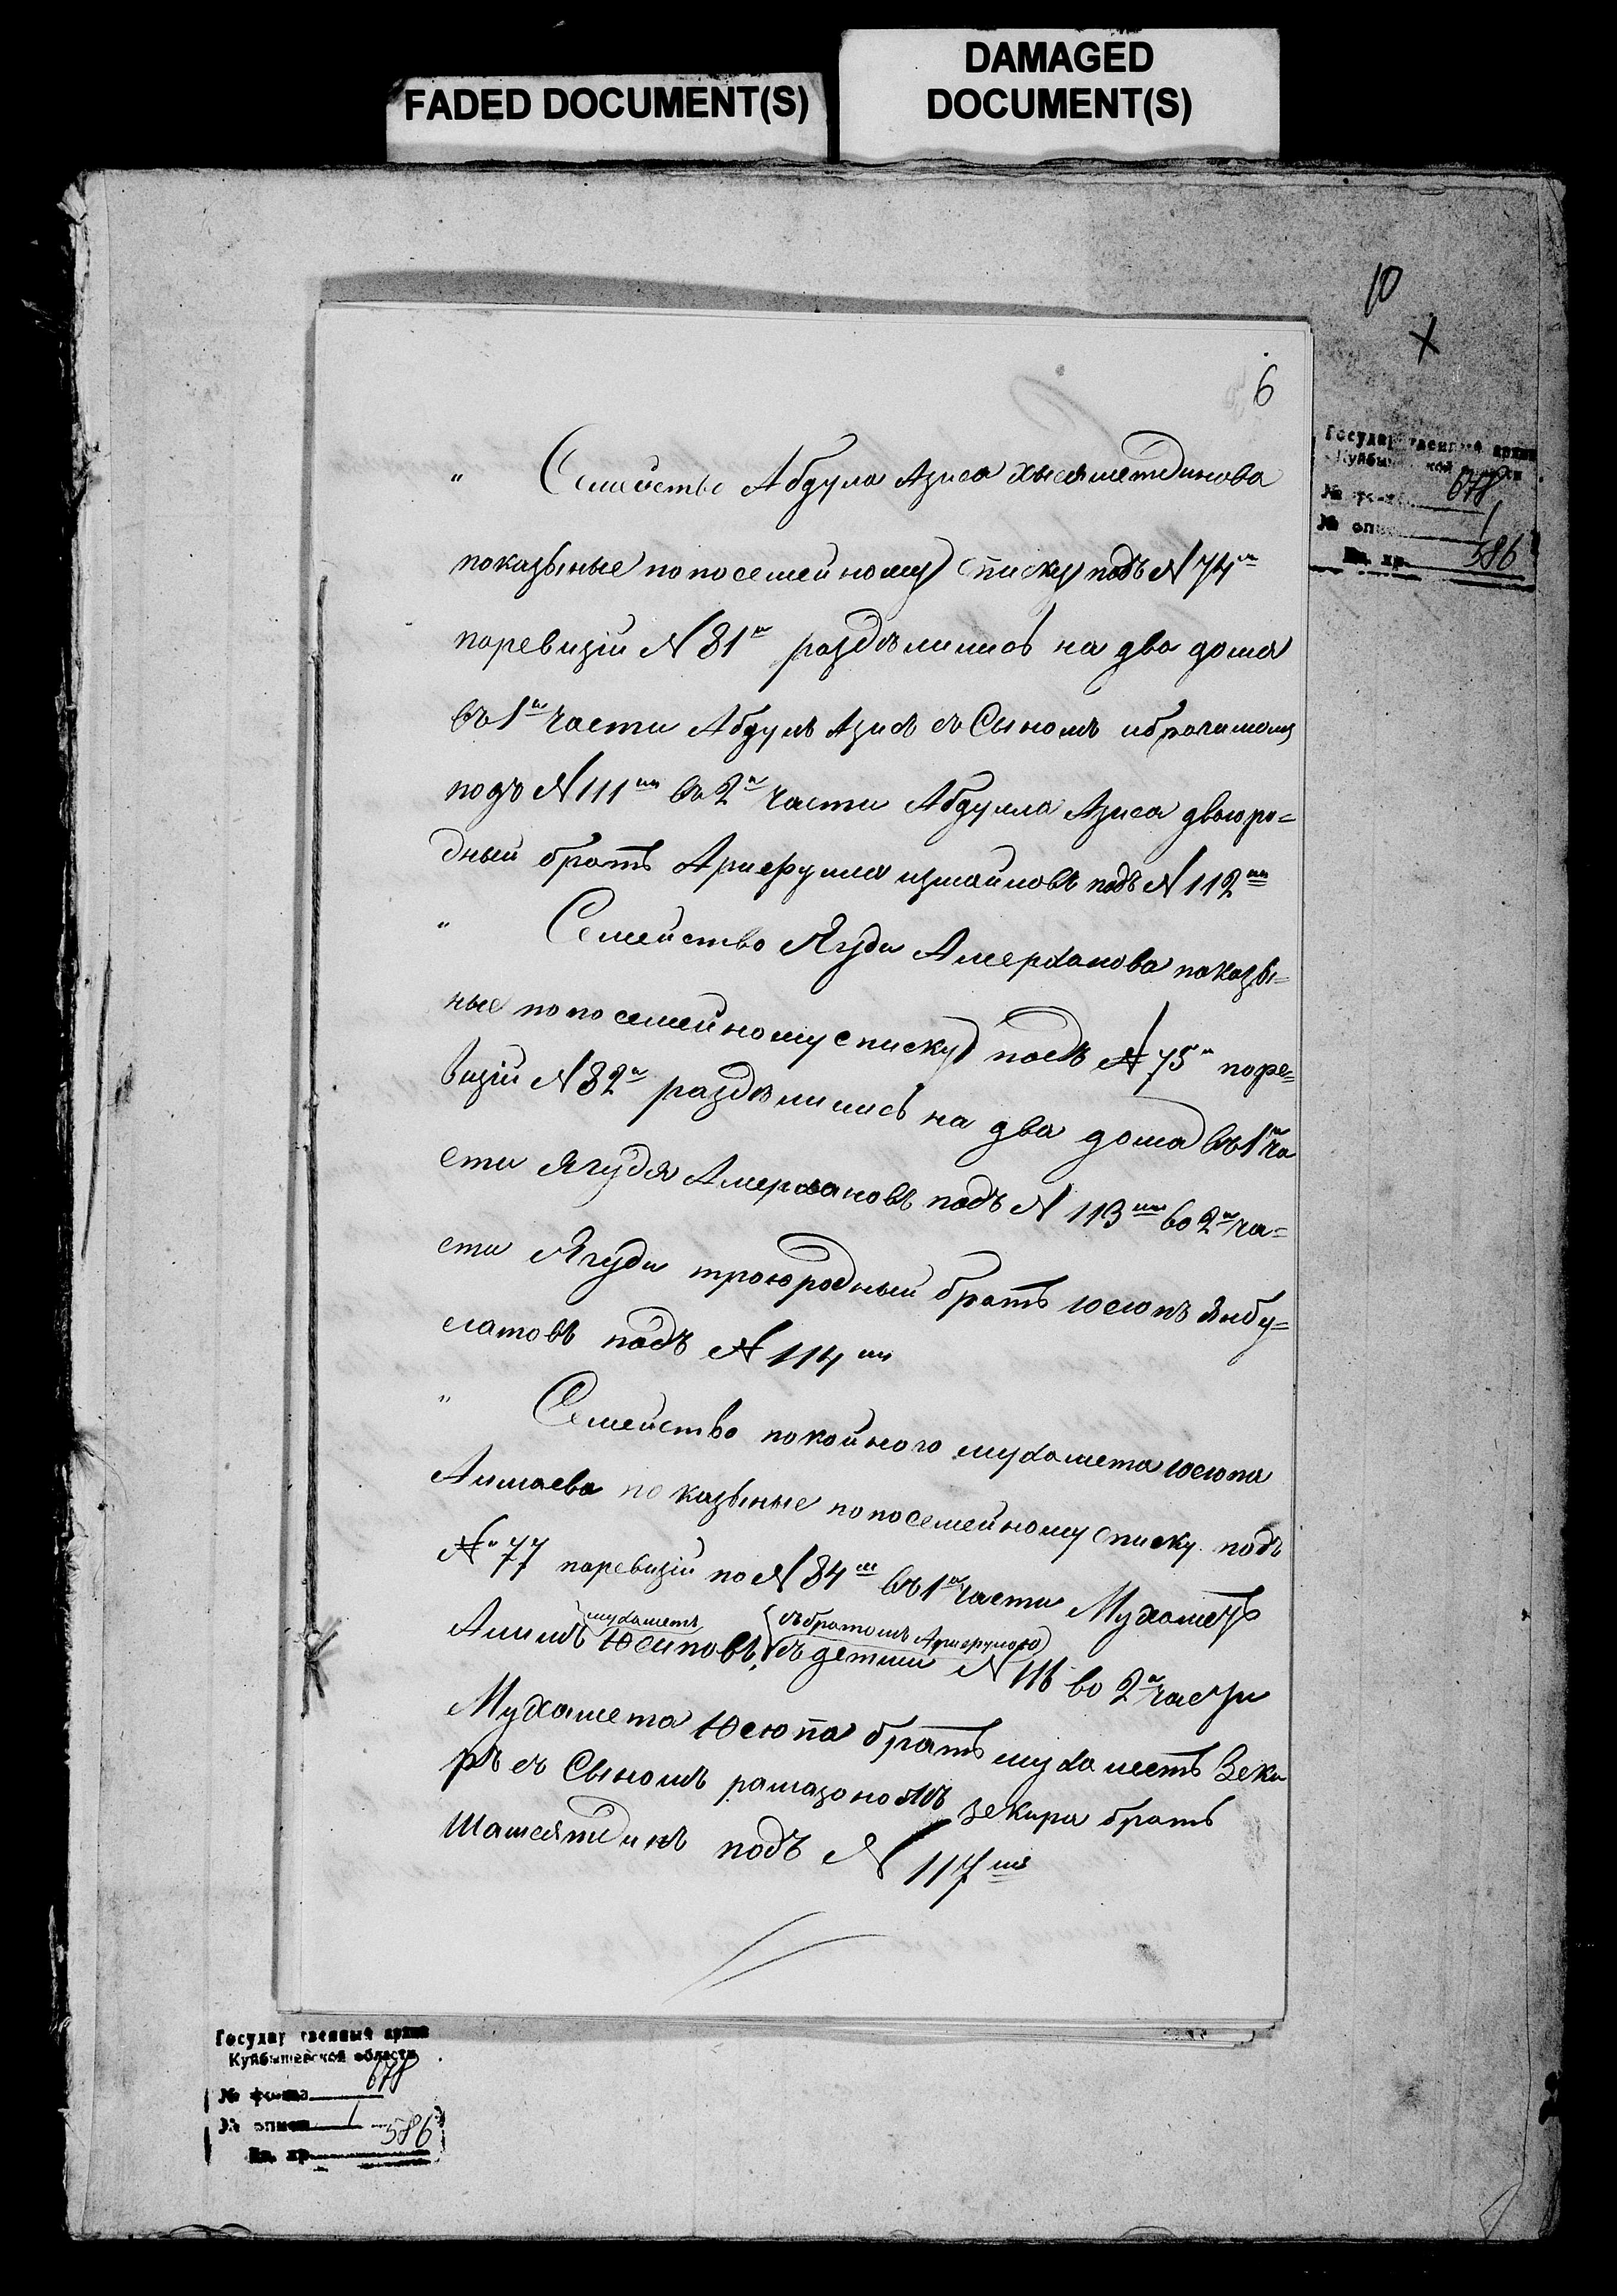 FADED DOCUMENT(S)
DAMAGED
DOCUMENT(S)
10
X
6
Государственный архив
Куйбышевской области
№ фонда 678
№ описи 1
Ед. хр. 586
„ Семейство Абдула Азиса хисяметдинова
показыные по посемейному списку подъ N 74м
поревизіи N 81м раздѣлились на два дома
въ 1й части Абдулъ Азисъ съ Сыномъ ибрагимомъ
подъ N 111мъ въ 2й части Абдулла Азиса двоюро=
дный братъ Арифулла измайловъ подъ N 112мъ
„ Семейство Ягуди Амерханова показы=
ные по посемейному списку подъ N 75м поре=
визіи N 82м раздѣлились на два дома въ 1й ча
сти Ягудя Амерхановъ подъ N 113мъ во 2й ча=
сти Ягуди троюродный братъ юсюпъ Янбу=
латовъ подъ N 114мъ
„ Семейство покойного мухамета юсюпа
Алимаева показыные по посемейному списку подъ
№ 77 поревизіи по N 84м въ 1й части Мухаметъ
мухаметъ съ братомъ Арифулою
Алимъ Юсиповъ, съ детми N 116 во 2й части
Мухамета Юсюпа братъ мухаметъ Зеки
ръ съ Сыномъ рамазономъ зекира братъ
Шамсятдинъ подъ N 117мъ
Государственный архив
Куйбышевской области
№ фонда 678
№ описи 1
Ед. хр. 586